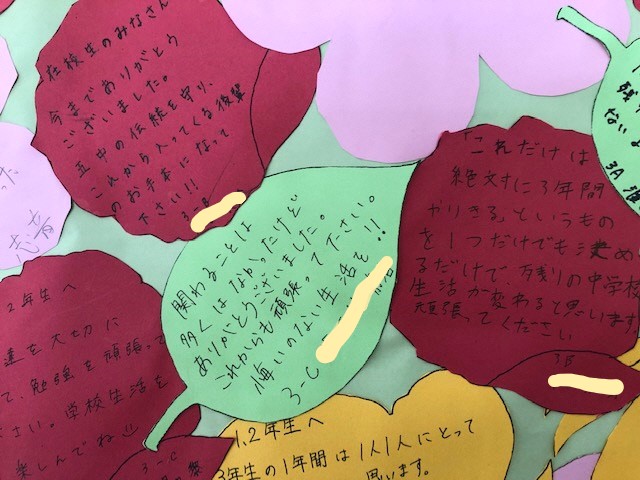 在校生のみなさん
今までありがとう
ございました。
五中の伝統を守り、
これから入ってくる後輩
のお手本になって
下さい!!
3-B
関わることは
多くはなかったけど
ありがとうございました。
これからも頑張って下さい。
悔いのない生活を!!
3-C
「これだけは
絶対に3年間
やりきる」というもの
を1つだけでも決め
るだけで、残りの中学校
生活が変わると思います
頑張ってください
3B
残
ない
3A
った
2年生へ
達を大切に
て、勉強を頑張って
さい。学校生活を
楽しんでね
3-C
1,2年生へ
3年生の1年間は1人1人にとって
思います。